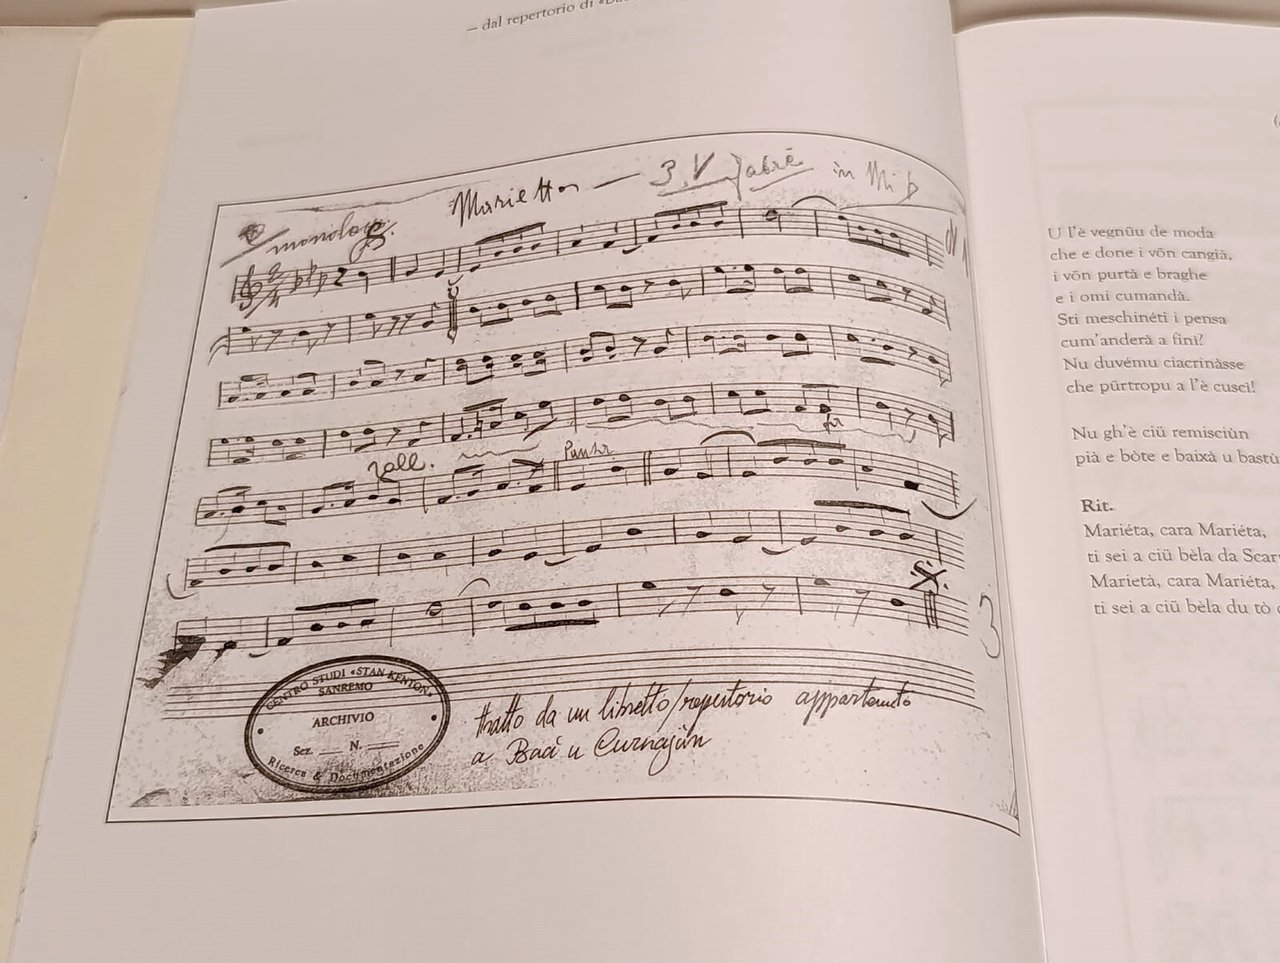 – dal repertorio di
monolog.
Marietta — 3 V in Mi b
rall.
Punta
CENTRO STUDI «STAN KENTON»
SANREMO
ARCHIVIO
Sez. N.
Ricerca & Documentazione
tratto da un libretto/repertorio appartenuto
a Baci u Curnajàn
U l'è vegnüu de moda
che e done i vőn cangià,
i vőn purtà e braghe
e i omi cumandà.
Sti meschinéti i pensa
cum'anderà a finì?
Nu duvému ciacrinàsse
che pürtropu a l'è cuscì!
Nu gh'è ciü remisciùn
pià e bòte e baixà u bastù
Rit.
Mariéta, cara Mariéta,
ti sei a ciü bèla da
Marietà, cara Mariéta,
ti sei a ciü bèla du tò